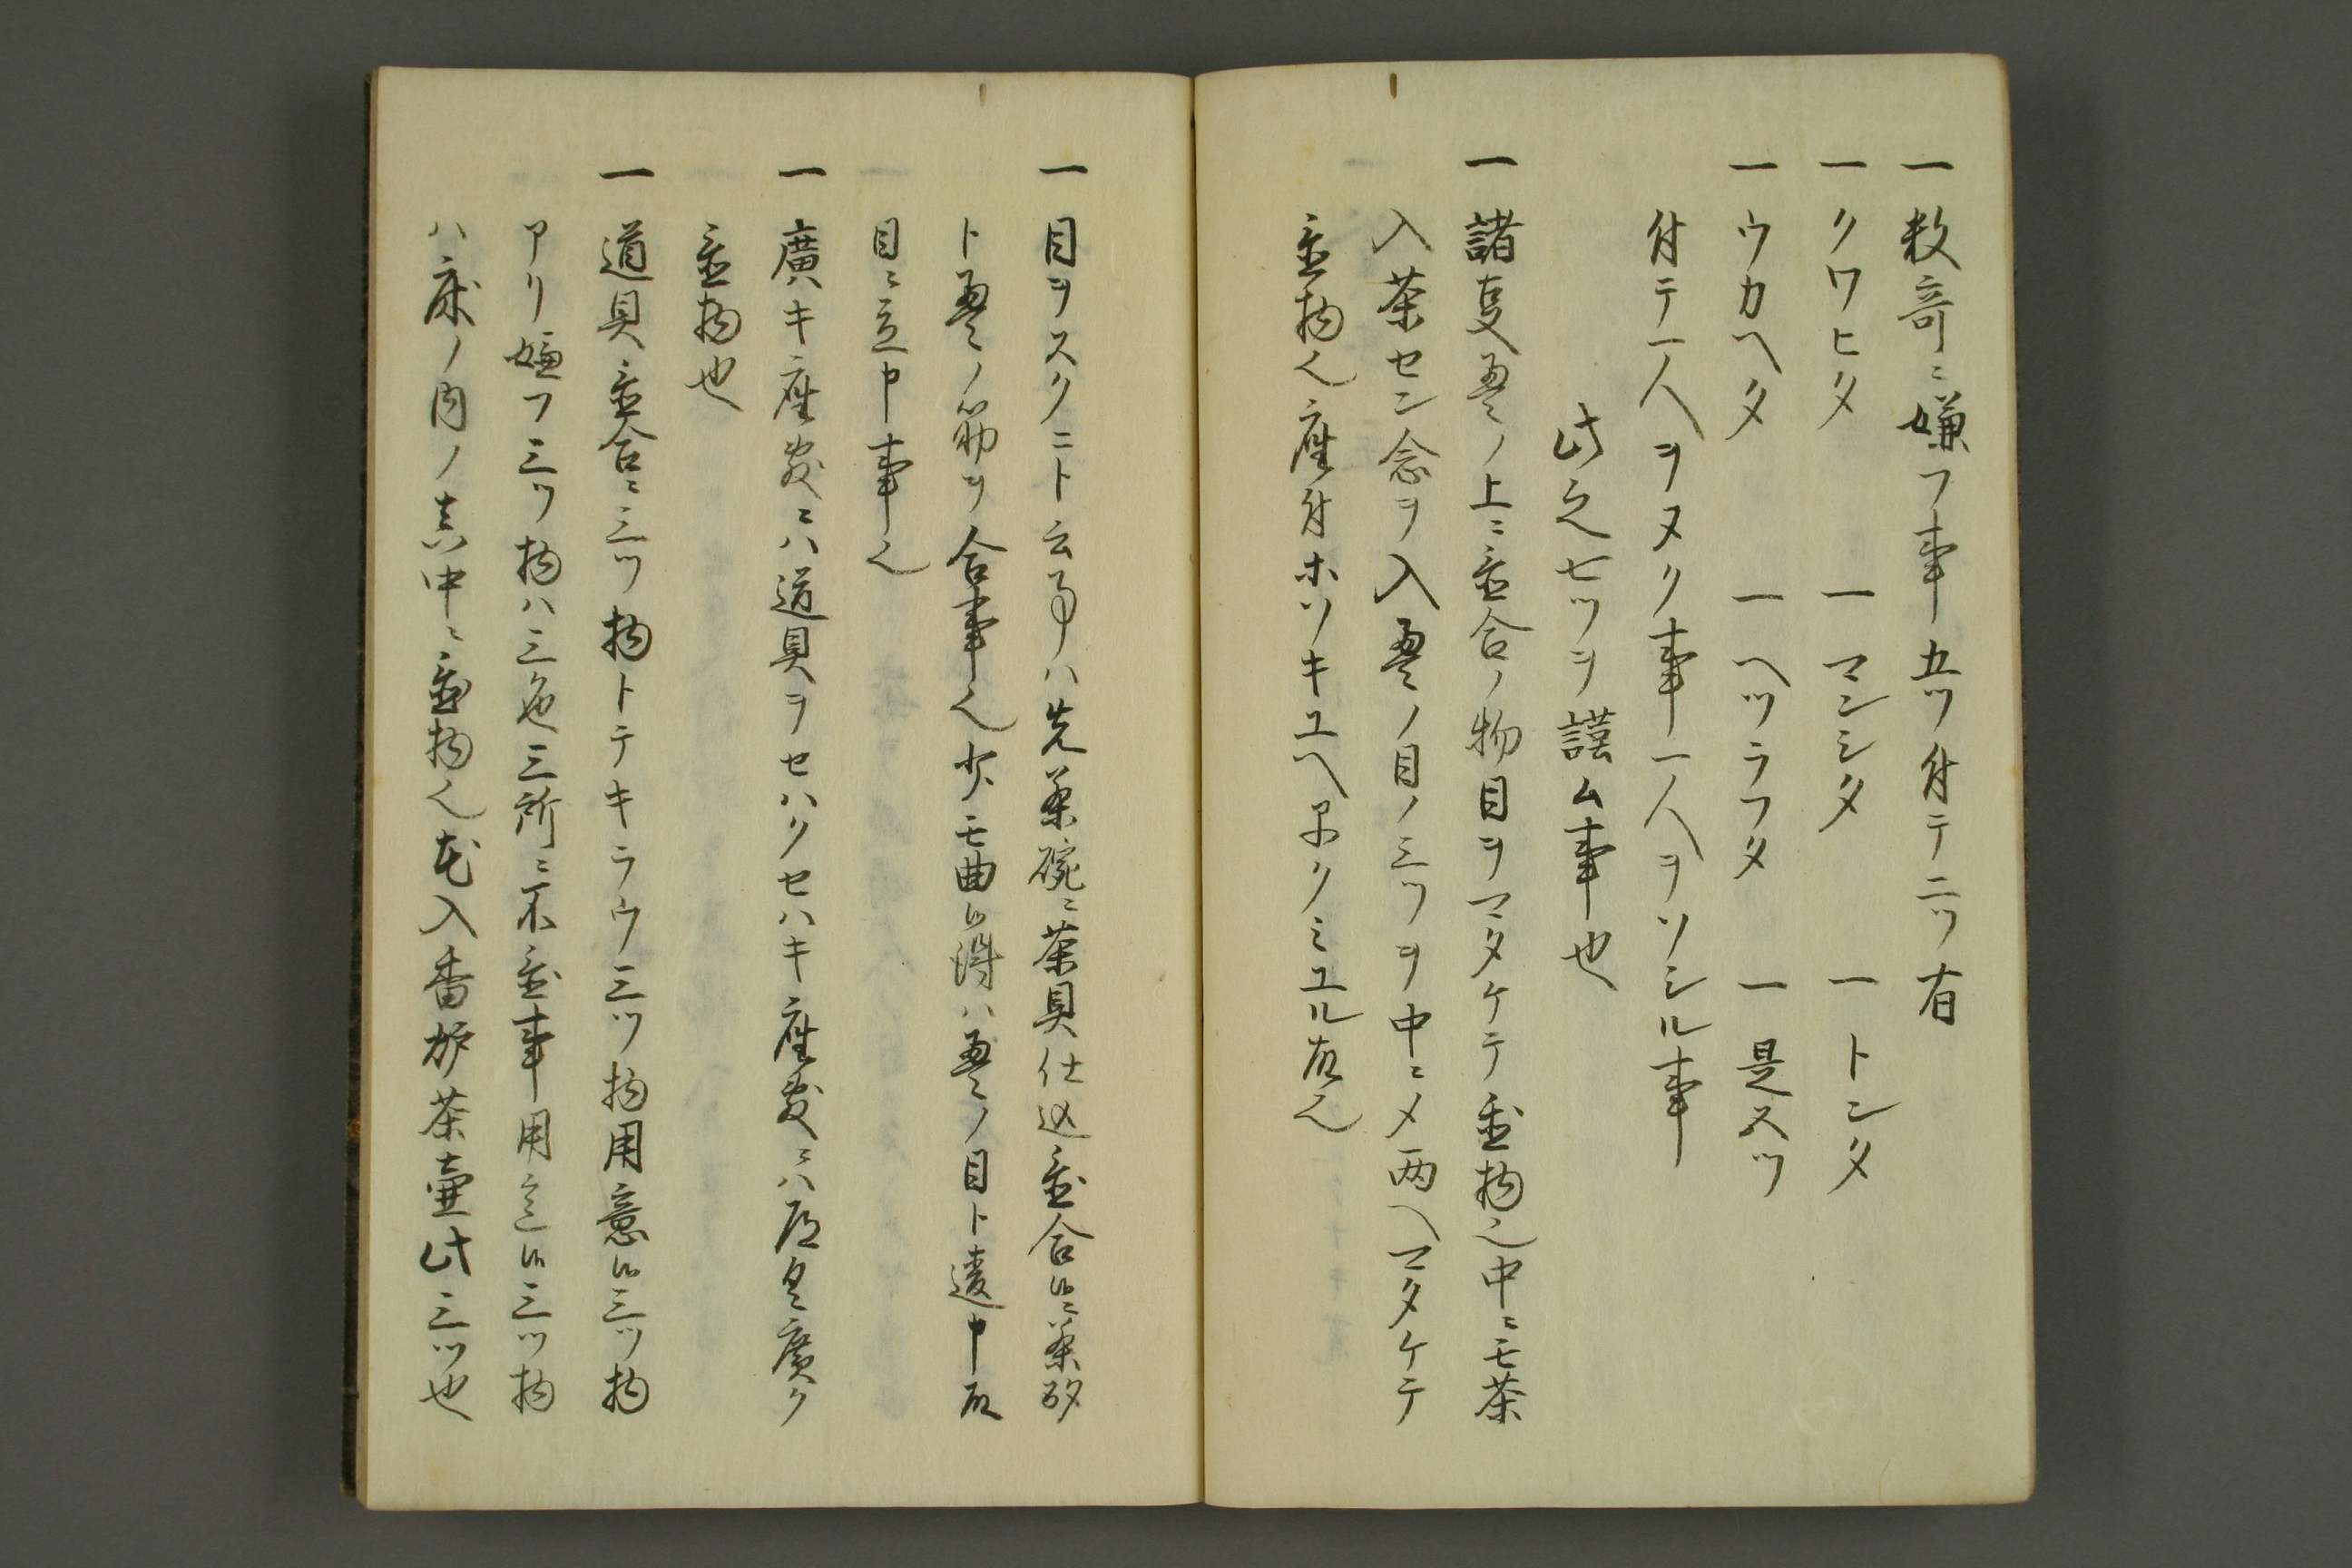 一 数奇ニ嫌フ事五ツ付テ二ツ有
一 クワヒタ 一 マンシタ 一 トンタ
一 ウカヘタ 一 ヘツラフタ 一 是五ツ
付テ一人ヲヌク事一人ヲソシル事
此之七ツヲ謹ム事也
一 諸事畳ノ上ニ置合ノ物目ヲマタケテ置物也中ニモ茶
入茶セン念ヲ入畳ノ目ノ三ツヲ中ニメ両ヘマタケテ
置物也座付ホソキユヘ早クミユル故也
一 目ヲスクニト云事ハ先茶碗ニ茶具仕込置合候ニ茶杓
ト畳ノ筋ヲ合事也少モ曲候得ハ畳ノ目ト違申故
目ニ立申事也
一 廣キ座敷ニハ道具ヲセハクセハキ座敷ニハ廣ク
置物也
一 道具置合ニ三ツ物トテキラウ三ツ物用意候三ツ物
アリ嫌フ三ツ物ハ三色三所ニ不置事用意候三ツ物
ハ床ノ内ノ真中ニ置物也花入香炉茶壷此三ツ也